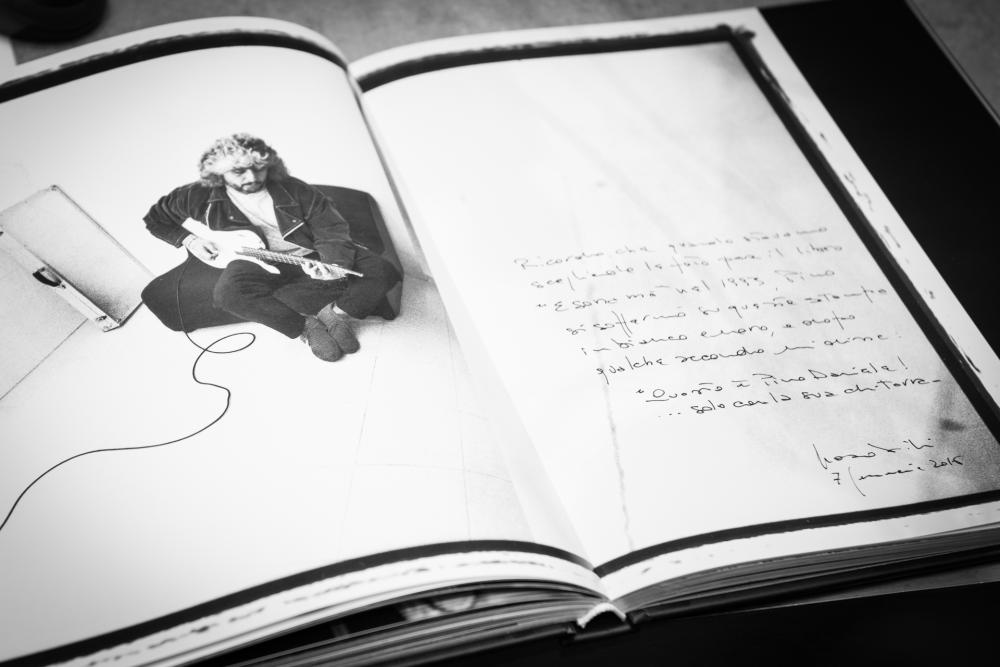 Ricordo che quando stavamo
scegliendo le foto per il libro
"E sono mo" nel 1993, Pino
si soffermò su questa stampa
in bianco e nero, e dopo
qualche secondo mi disse:
"Questo è Pino Daniele!
... solo con la sua chitarra_
7 gennaio 2015